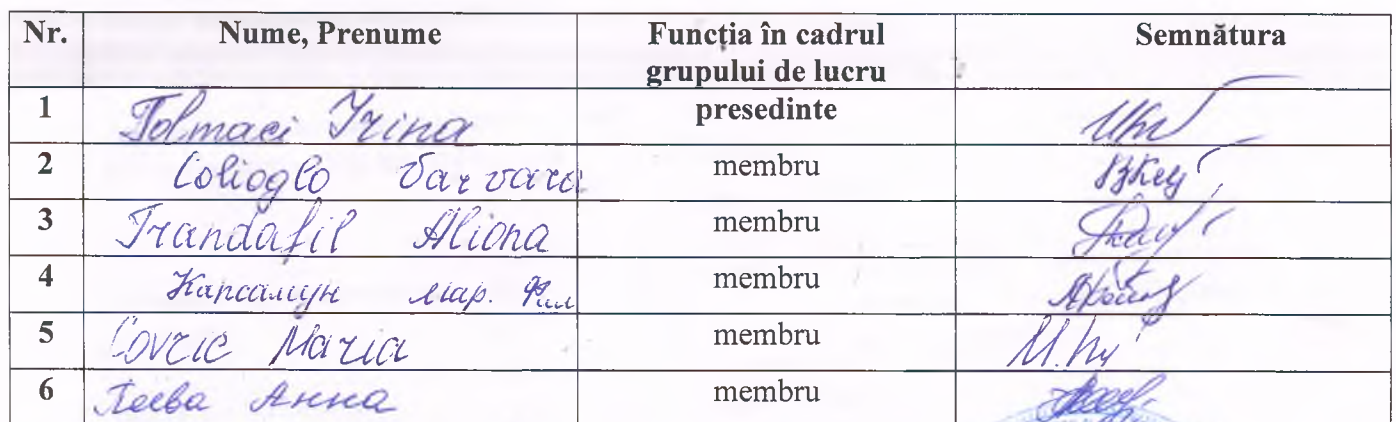 Nr. Nume, Prenume Funcția în cadrul grupului de lucru Semnătura
1 Tolmaci Irina presedinte
2 Colioglo Varvara membru
3 Trandafil Aliona membru
4 Капсамун мар. Фил membru
5 Covric Maria membru
6 Анна membru